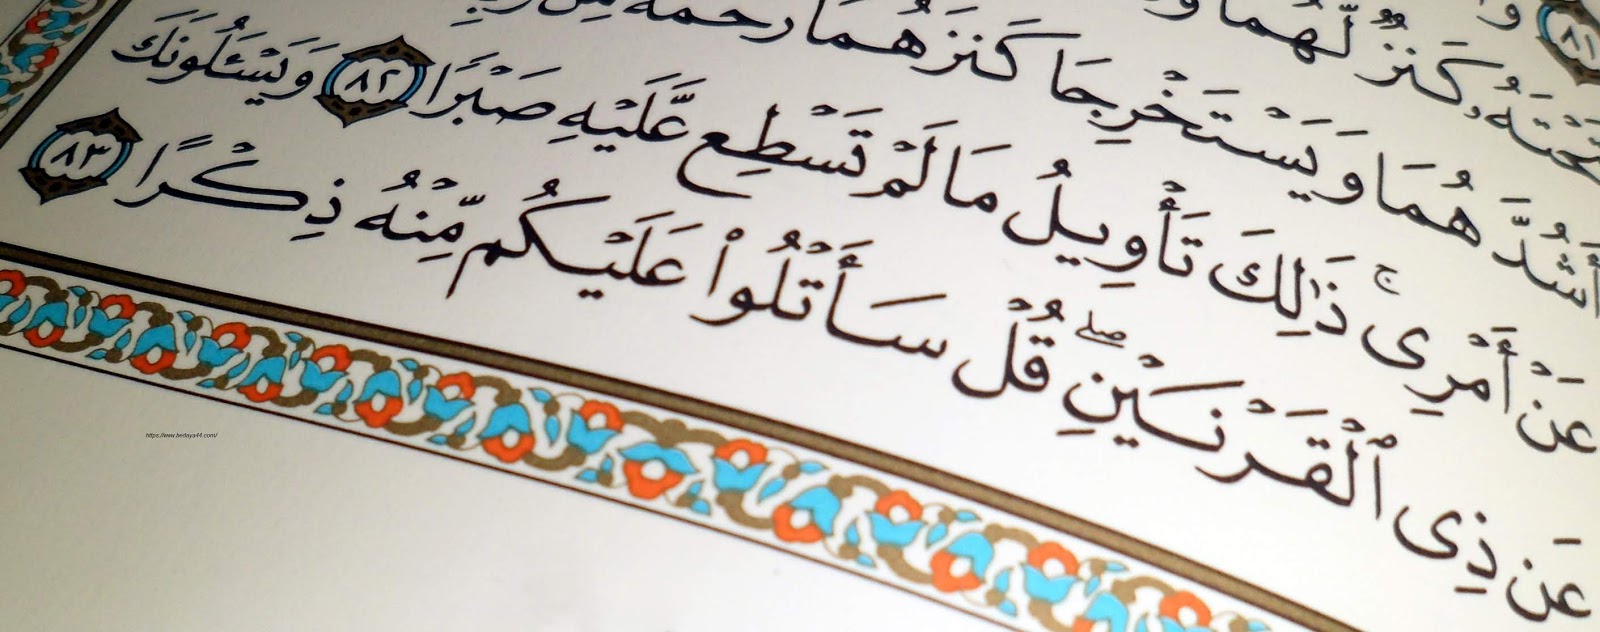 ٨١
تَحْتَهُۥ كَنزٌ لَّهُمَا
أَشُدَّهُمَا وَيَسْتَخْرِجَا كَنزَهُمَا رَحْمَةً مِّن
عَنْ أَمْرِى ۚ ذَٰلِكَ تَأْوِيلُ مَا لَمْ تَسْطِع عَّلَيْهِ صَبْرًا ٨٢ وَيَسْـَٔلُونَكَ
عَن ذِى ٱلْقَرْنَيْنِ ۖ قُلْ سَأَتْلُوا۟ عَلَيْكُم مِّنْهُ ذِكْرًا ٨٣
https://www.hedaya44.com/